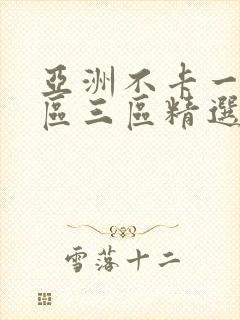 亞洲不卡一
區三區精選
雪落十二